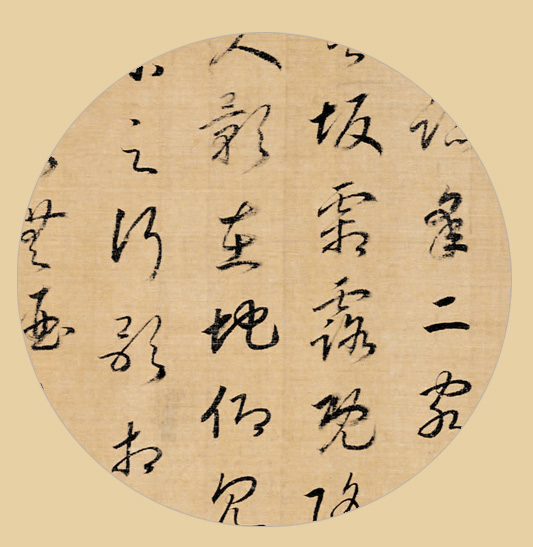 臨皋二客
坂霜露既降
人影在地仰見
之行歌相
無酒